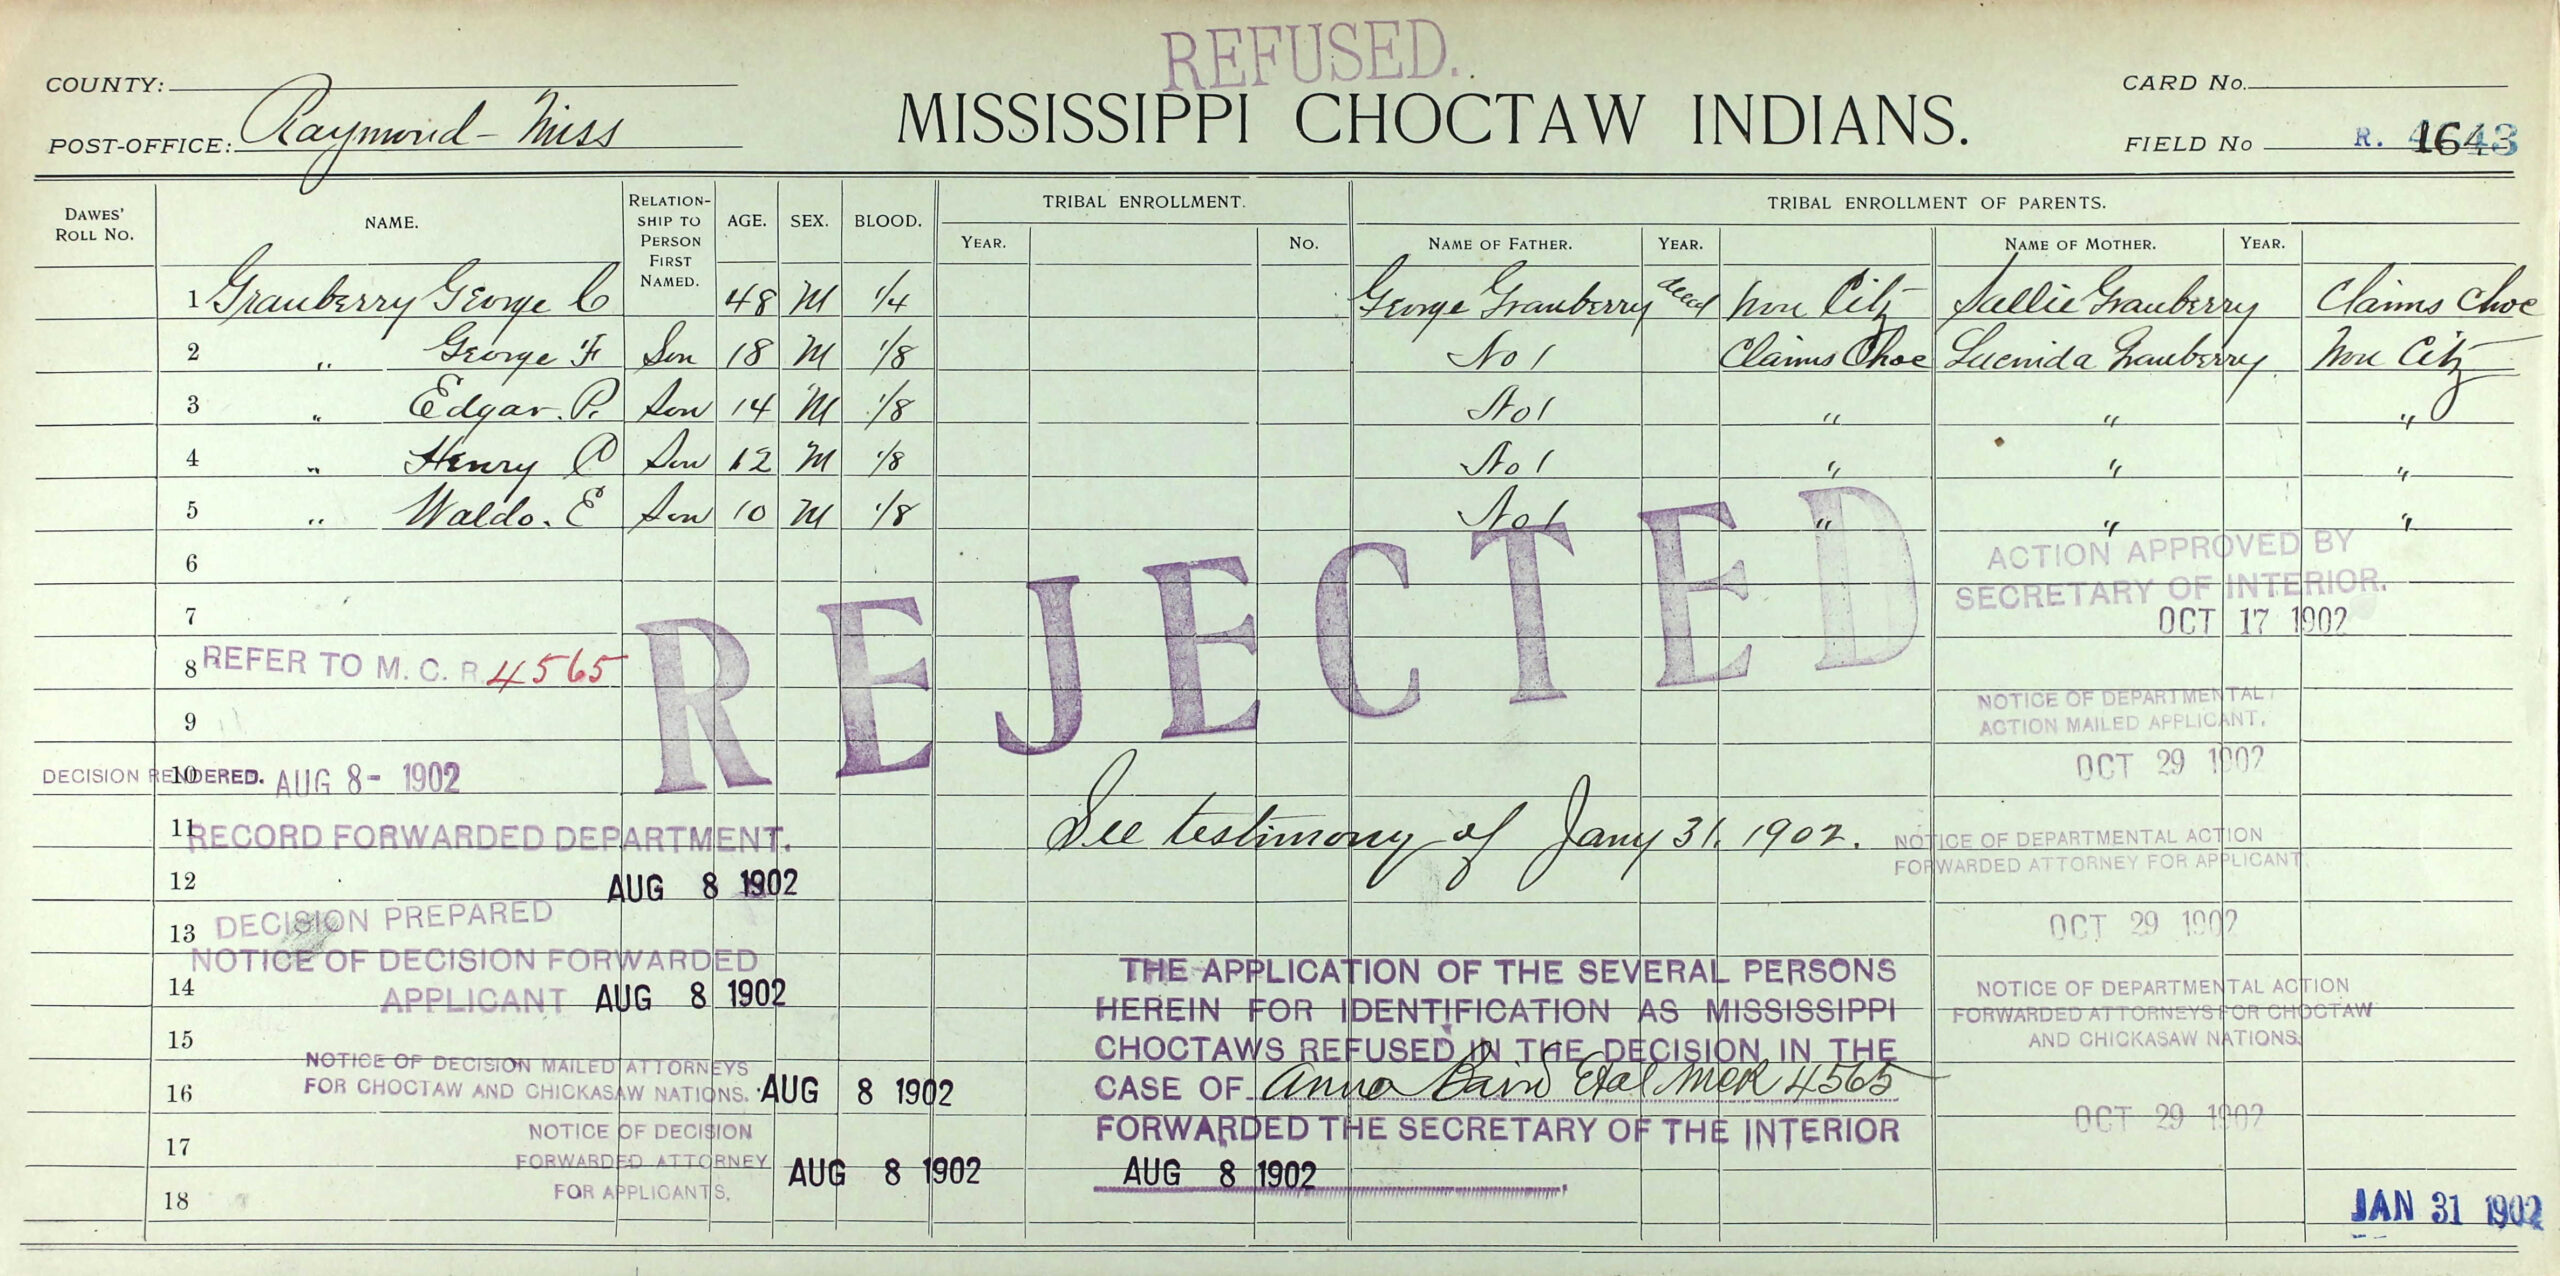 REFUSED.
COUNTY:
POST-OFFICE: Raymond - Miss
MISSISSIPPI CHOCTAW INDIANS.
CARD No.
FIELD No R. 1643
DAWES' ROLL NO. NAME. RELATIONSHIP TO PERSON FIRST NAMED. AGE. SEX. BLOOD. TRIBAL ENROLLMENT. TRIBAL ENROLLMENT OF PARENTS.
YEAR. NO. NAME OF FATHER. YEAR. NAME OF MOTHER. YEAR.
1 Granberry George C 48 M 1/4 George Granberry decd Non Citz Sallie Granberry Claims Choc
2 " George F Son 18 M 1/8 No 1 Claims Choc Lucinda Granberry Non Citz
3 " Edgar. P. Son 14 M 1/8 No 1 " " "
4 " Henry C Son 12 M 1/8 No 1 " " "
5 " Waldo. E Son 10 M 1/8 No 1 " " "
6
7
8 REFER TO M. C. R. 4565
9
10 DECISION RENDERED. AUG 8- 1902
11 RECORD FORWARDED DEPARTMENT.
12 AUG 8 1902
13 DECISION PREPARED
NOTICE OF DECISION FORWARDED
14 APPLICANT AUG 8 1902
15
NOTICE OF DECISION MAILED ATTORNEYS
16 FOR CHOCTAW AND CHICKASAW NATIONS. AUG 8 1902
17 NOTICE OF DECISION
FORWARDED ATTORNEY AUG 8 1902
18 FOR APPLICANTS.
REJECTED
See testimony of Jany 31, 1902.
THE APPLICATION OF THE SEVERAL PERSONS
HEREIN FOR IDENTIFICATION AS MISSISSIPPI
CHOCTAWS REFUSED IN THE DECISION IN THE
CASE OF Anna Bain Etal MCR 4565
FORWARDED THE SECRETARY OF THE INTERIOR
AUG 8 1902
ACTION APPROVED BY
SECRETARY OF INTERIOR.
OCT 17 1902
NOTICE OF DEPARTMENTAL
ACTION MAILED APPLICANT.
OCT 29 1902
NOTICE OF DEPARTMENTAL ACTION
FORWARDED ATTORNEY FOR APPLICANT.
OCT 29 1902
NOTICE OF DEPARTMENTAL ACTION
FORWARDED ATTORNEYS FOR CHOCTAW
AND CHICKASAW NATIONS.
OCT 29 1902
JAN 31 1902